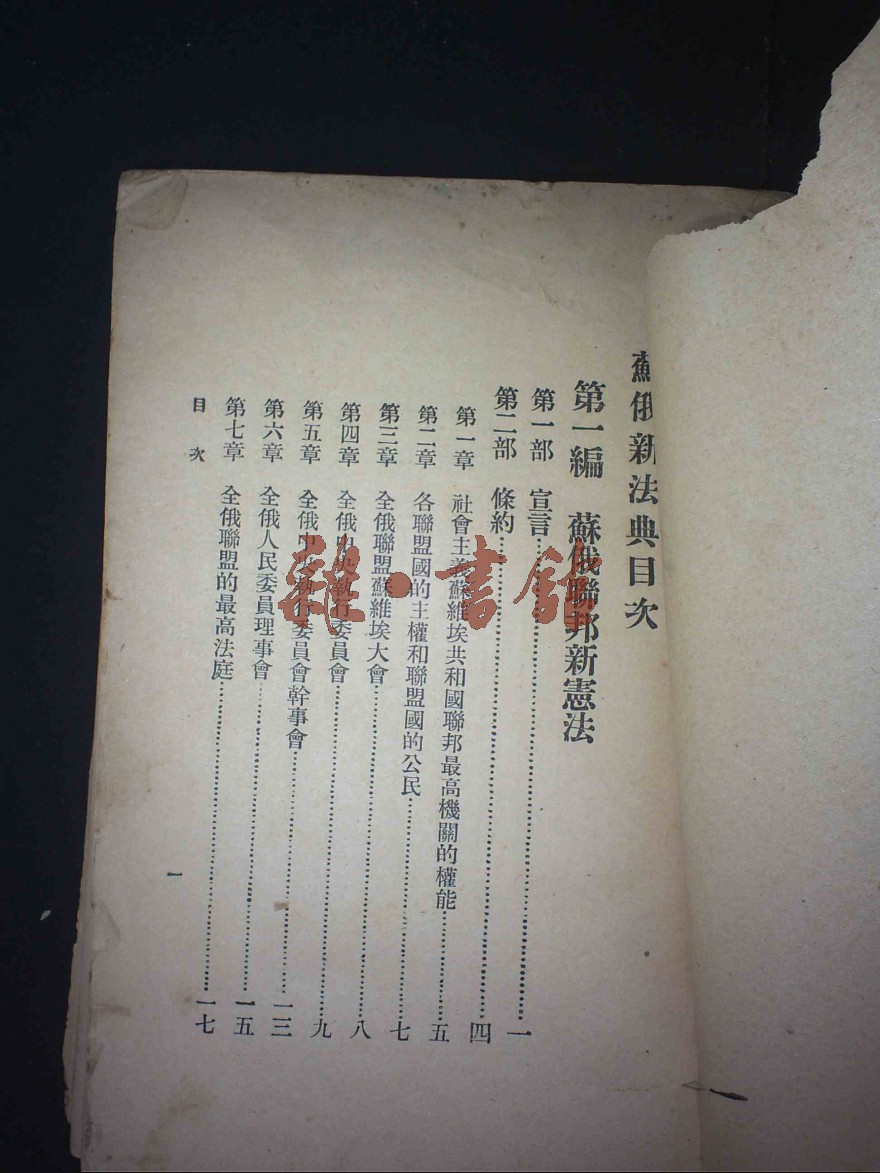 蘇俄新法典目次
第一編 蘇俄聯邦新憲法
第一部 宣言……一
第二部 條約……四
第一章 社會主義蘇維埃共和國聯邦最高機關的權能……五
第二章 各聯盟國的主權和聯盟國的公民……七
第三章 全俄聯盟蘇維埃大會……八
第四章 全俄中央執行委員會……九
第五章 全俄中央執行委員會幹事會……一三
第六章 全俄人民委員理事會……一五
第七章 全俄聯盟的最高法庭……一七
目次
一